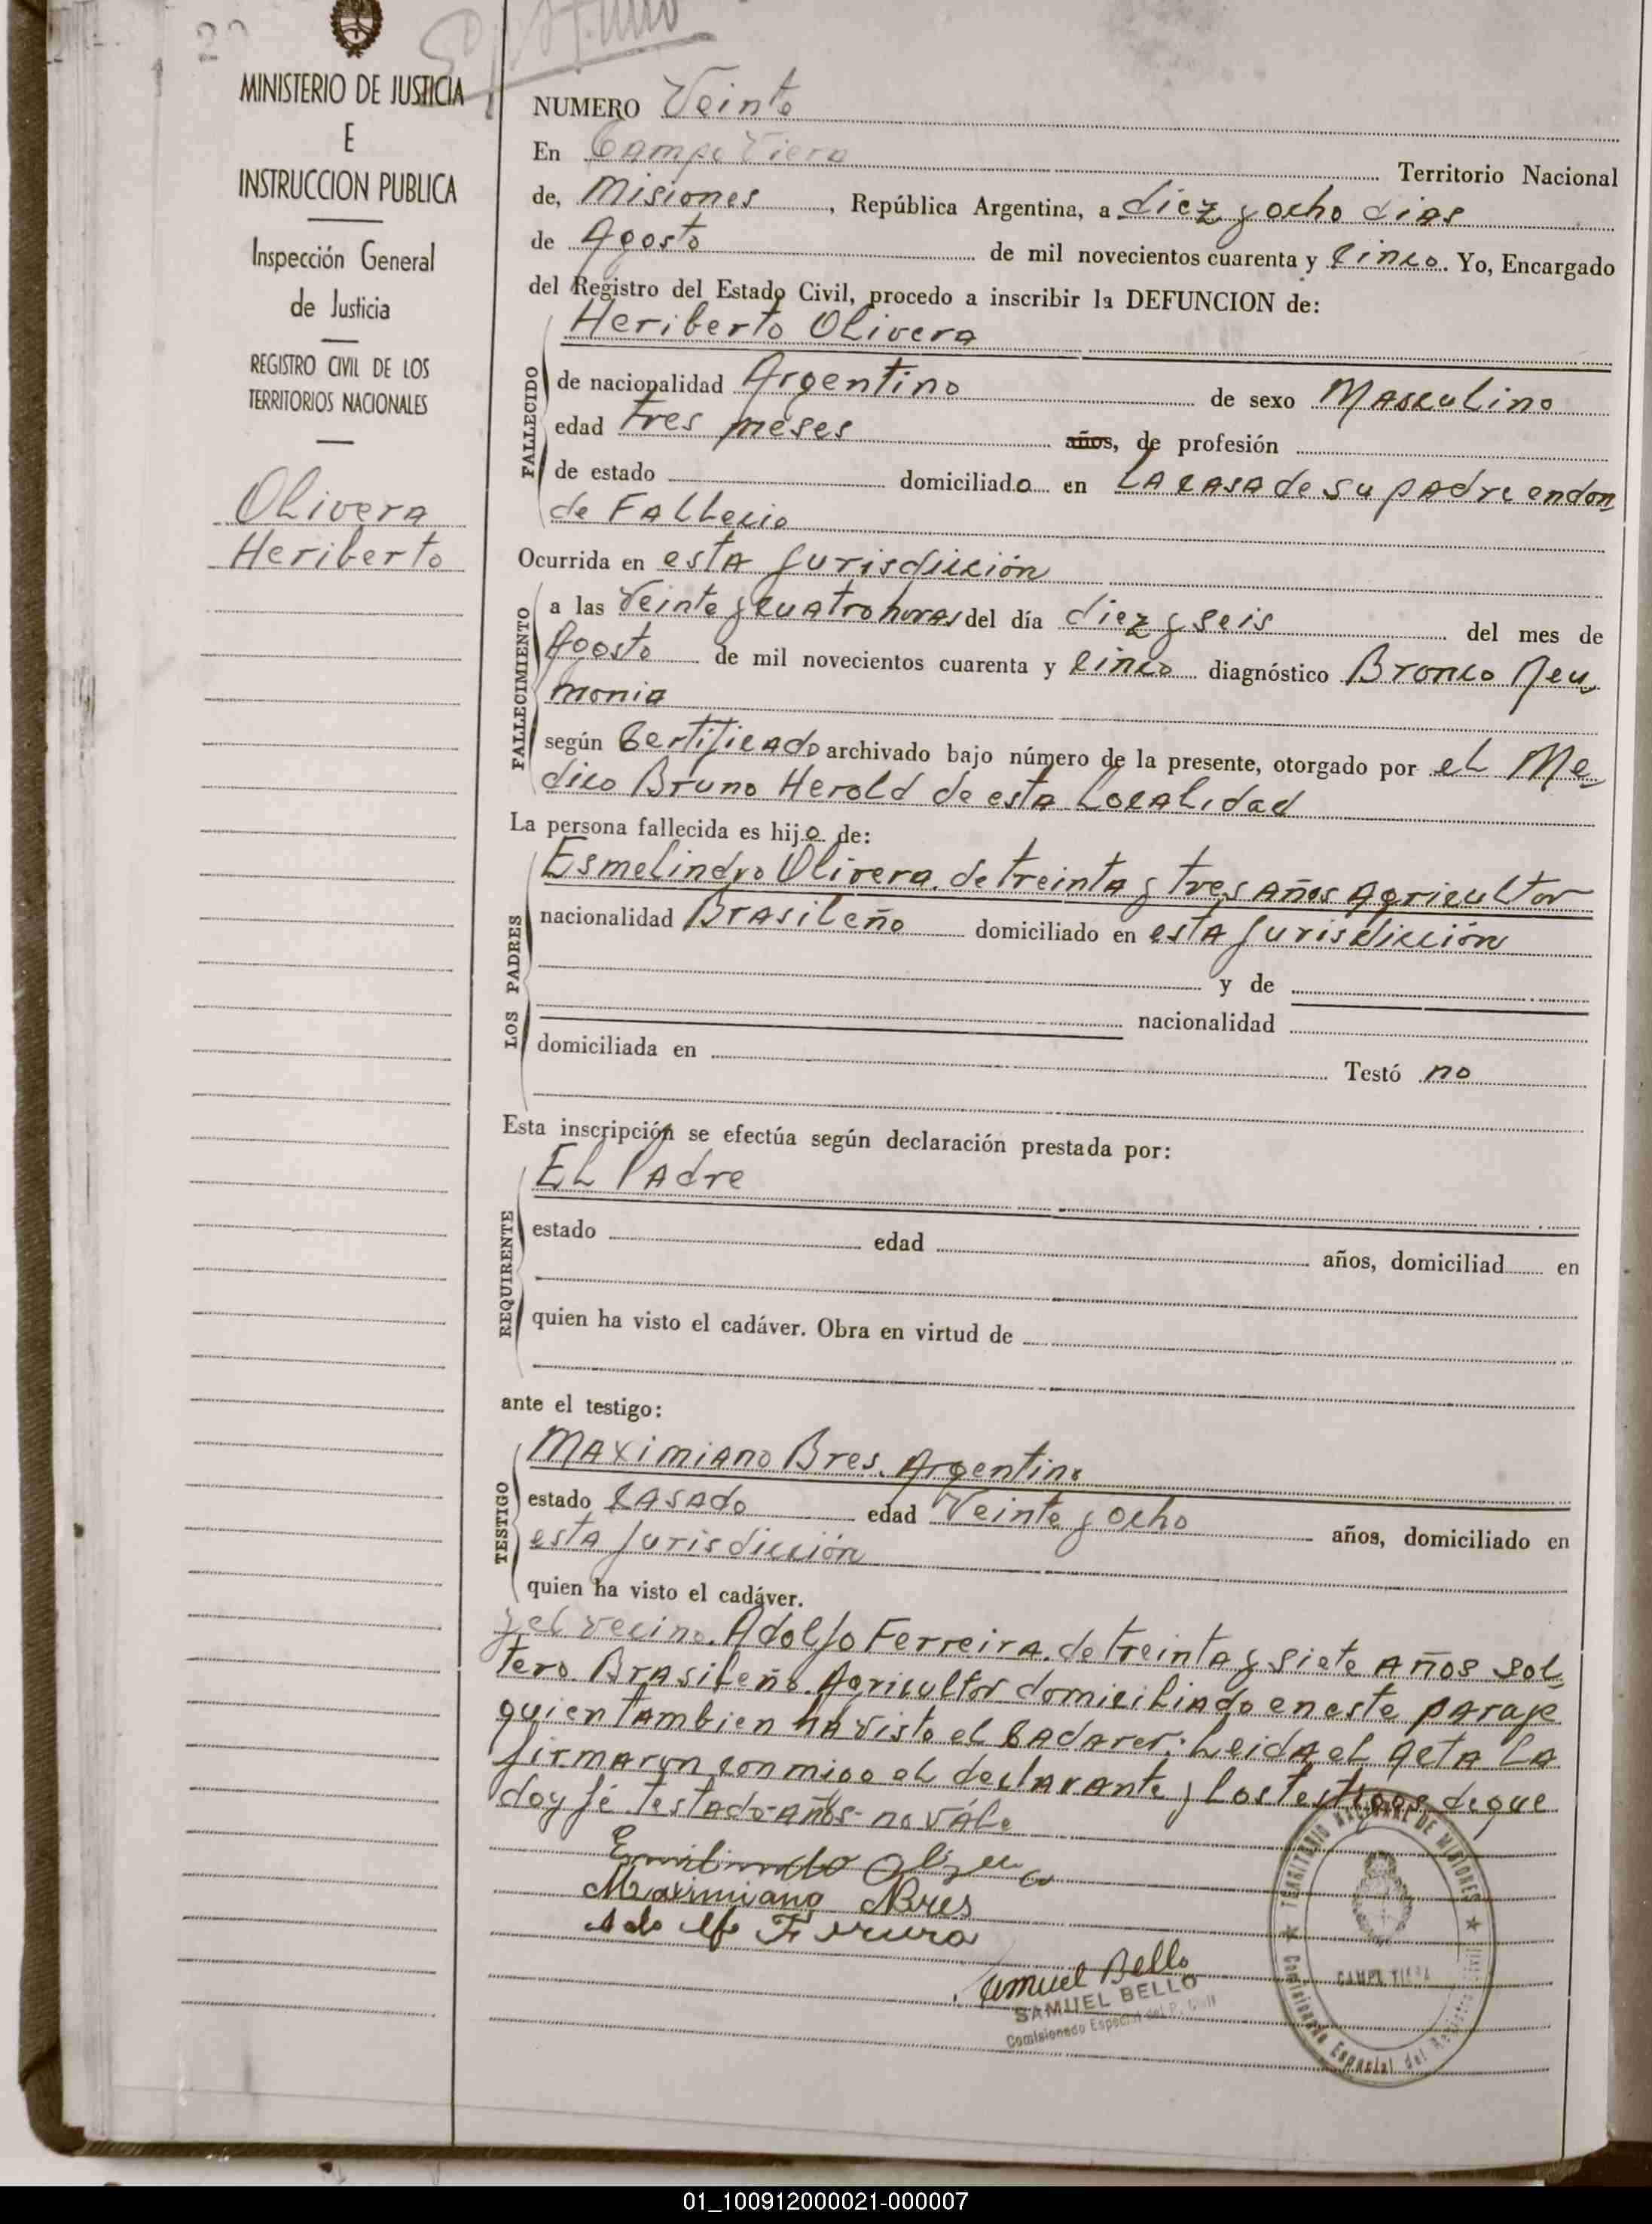 MINISTERIO DE JUSTICIA
E
INSTRUCCION PUBLICA
Inspección General
de Justicia
REGISTRO CIVIL DE LOS
TERRITORIOS NACIONALES
Olivera
Heriberto
NUMERO Veinte
En Campo Viera Territorio Nacional
de, Misiones, República Argentina, a diez y ocho dias
de Agosto de mil novecientos cuarenta y cinco. Yo, Encargado
del Registro del Estado Civil, procedo a inscribir la DEFUNCION de:
Heriberto Olivera
FALLECIDO
de nacionalidad Argentino de sexo Masculino
edad tres meses años, de profesión
de estado domiciliado en la casa de su padre endon
de Fallecio
Ocurrida en esta jurisdicción
FALLECIMIENTO
a las veinte y cuatro horas del día diez y seis del mes de
Agosto de mil novecientos cuarenta y cinco diagnóstico Bronco Neu
monia
según Certificado archivado bajo número de la presente, otorgado por el Me
dico Bruno Herold de esta Localidad
La persona fallecida es hijo de:
LOS PADRES
Esmelindro Olivera. de treinta y tres años Agricultor
nacionalidad Brasileño domiciliado en esta jurisdicción
y de
nacionalidad
domiciliada en Testó no
Esta inscripción se efectúa según declaración prestada por:
REQUIRENTE
El Padre
estado edad años, domiciliad en
quien ha visto el cadáver. Obra en virtud de
ante el testigo:
TESTIGO
Maximiano Bres. Argentino
estado casado edad veinte y ocho años, domiciliado en
esta jurisdicción
quien ha visto el cadáver.
y el vecino. Adolfo Ferreira. de treinta y siete años sol
tero. Brasileño. Agricultor domiciliado en este paraje
quien tambien ha visto el cadaver. Leida el acta la
firmaron conmigo el declarante y los testigos de que
doy fé. testado-años-no vále
Maximiano Bres
Adolfo Ferrera
Samuel Bello
SAMUEL BELLO
Comisionado Especial del R. Civil
TERRITORIO NACIONAL DE MISIONES
CAMPO VIERA
Comisionado Especial del Registro Civil
01_100912000021-000007